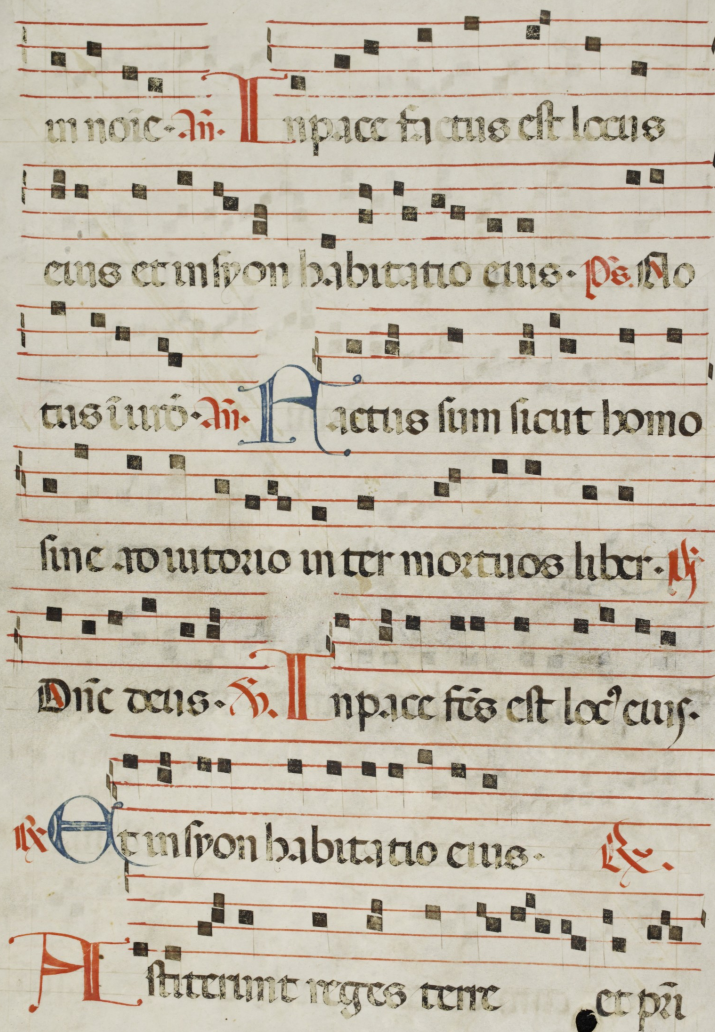 in noīe. añ. In pace factus est locus
eius et in syon habitatio eius. ps. No
tus ī iudō. Añ. Factus sum sicut homo
sine adiutorio inter mortuos liber. ps
Dñe deus. V. In pace fc̄s est loc' eius.
R Et in syon habitatio eius. R.
Astiterunt reges terre et prī